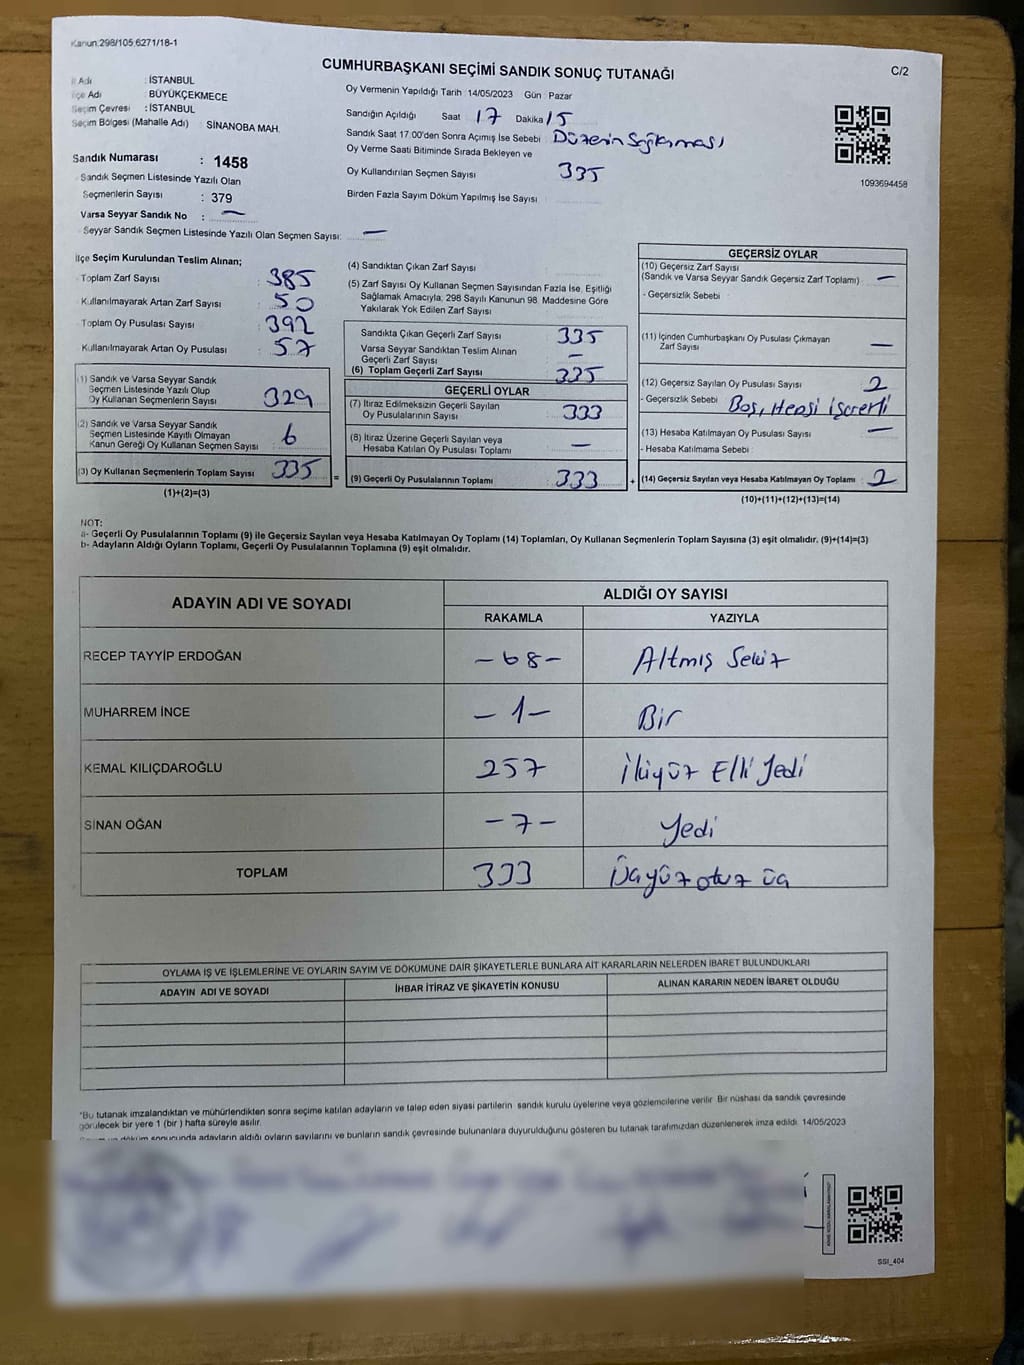 Kanun:298/105,6271/18-1
CUMHURBAŞKANI SEÇİMİ SANDIK SONUÇ TUTANAĞI
C/2
İl Adı : İSTANBUL
İlçe Adı : BÜYÜKÇEKMECE
Seçim Çevresi : İSTANBUL
Seçim Bölgesi (Mahalle Adı) : SİNANOBA MAH.
Sandık Numarası : 1458
Sandık Seçmen Listesinde Yazılı Olan
Seçmenlerin Sayısı : 379
Varsa Seyyar Sandık No : —
Seyyar Sandık Seçmen Listesinde Yazılı Olan Seçmen Sayısı: —
Oy Vermenin Yapıldığı Tarih : 14/05/2023 Gün : Pazar
Sandığın Açıldığı Saat 17 Dakika 15
Sandık Saat 17.00'den Sonra Açımış İse Sebebi Düzenin Sağlanması
Oy Verme Saati Bitiminde Sırada Bekleyen ve
Oy Kullandırılan Seçmen Sayısı 335
Birden Fazla Sayım Döküm Yapılmış İse Sayısı
1093694458
İlçe Seçim Kurulundan Teslim Alınan;
Toplam Zarf Sayısı : 385
Kullanılmayarak Artan Zarf Sayısı : 50
Toplam Oy Pusulası Sayısı : 392
Kullanılmayarak Artan Oy Pusulası : 57
(1) Sandık ve Varsa Seyyar Sandık
Seçmen Listesinde Yazılı Olup
Oy Kullanan Seçmenlerin Sayısı : 329
(2) Sandık ve Varsa Seyyar Sandık
Seçmen Listesinde Kayıtlı Olmayan
Kanun Gereği Oy Kullanan Seçmen Sayısı : 6
(3) Oy Kullanan Seçmenlerin Toplam Sayısı : 335 =
(1)+(2)=(3)
(4) Sandıktan Çıkan Zarf Sayısı
(5) Zarf Sayısı Oy Kullanan Seçmen Sayısından Fazla İse, Eşitliği
Sağlamak Amacıyla; 298 Sayılı Kanunun 98. Maddesine Göre
Yakılarak Yok Edilen Zarf Sayısı :
Sandıkta Çıkan Geçerli Zarf Sayısı : 335
Varsa Seyyar Sandıktan Teslim Alınan
Geçerli Zarf Sayısı : —
(6) Toplam Geçerli Zarf Sayısı : 335
GEÇERLİ OYLAR
(7) İtiraz Edilmeksizin Geçerli Sayılan
Oy Pusulalarının Sayısı : 333
(8) İtiraz Üzerine Geçerli Sayılan veya
Hesaba Katılan Oy Pusulası Toplamı : —
(9) Geçerli Oy Pusulalarının Toplamı : 333 +
GEÇERSİZ OYLAR
(10) Geçersiz Zarf Sayısı
(Sandık ve Varsa Seyyar Sandık Geçersiz Zarf Toplamı) : —
- Geçersizlik Sebebi :
(11) İçinden Cumhurbaşkanı Oy Pusulası Çıkmayan
Zarf Sayısı : —
(12) Geçersiz Sayılan Oy Pusulası Sayısı : 2
- Geçersizlik Sebebi : Boş, Hepsi işaretli
(13) Hesaba Katılmayan Oy Pusulası Sayısı : —
- Hesaba Katılmama Sebebi :
(14) Geçersiz Sayılan veya Hesaba Katılmayan Oy Toplamı : 2
(10)+(11)+(12)+(13)=(14)
NOT:
a- Geçerli Oy Pusulalarının Toplamı (9) ile Geçersiz Sayılan veya Hesaba Katılmayan Oy Toplamı (14) Toplamları, Oy Kullanan Seçmenlerin Toplam Sayısına (3) eşit olmalıdır. (9)+(14)=(3)
b- Adayların Aldığı Oyların Toplamı, Geçerli Oy Pusulalarının Toplamına (9) eşit olmalıdır.
ADAYIN ADI VE SOYADI
ALDIĞI OY SAYISI
RAKAMLA YAZIYLA
RECEP TAYYİP ERDOĞAN -68- Altmış Sekiz
MUHARREM İNCE -1- Bir
KEMAL KILIÇDAROĞLU 257 İkiyüz Elli Yedi
SİNAN OĞAN -7- Yedi
TOPLAM 333 Üçyüz otuz üç
OYLAMA İŞ VE İŞLEMLERİNE VE OYLARIN SAYIM VE DÖKÜMÜNE DAİR ŞİKAYETLERLE BUNLARA AİT KARARLARIN NELERDEN İBARET BULUNDUKLARI
ADAYIN ADI VE SOYADI İHBAR İTİRAZ VE ŞİKAYETİN KONUSU ALINAN KARARIN NEDEN İBARET OLDUĞU
*Bu tutanak imzalandıktan ve mühürlendikten sonra seçime katılan adayların ve talep eden siyasi partilerin sandık kurulu üyelerine veya gözlemcilerine verilir. Bir nüshası da sandık çevresinde
görülecek bir yere 1 (bir) hafta süreyle asılır.
döküm sonucunda adayların aldığı oyların sayılarını ve bunların sandık çevresinde bulunanlara duyurulduğunu gösteren bu tutanak tarafımızdan düzenlenerek imza edildi. 14/05/2023
SSI_404